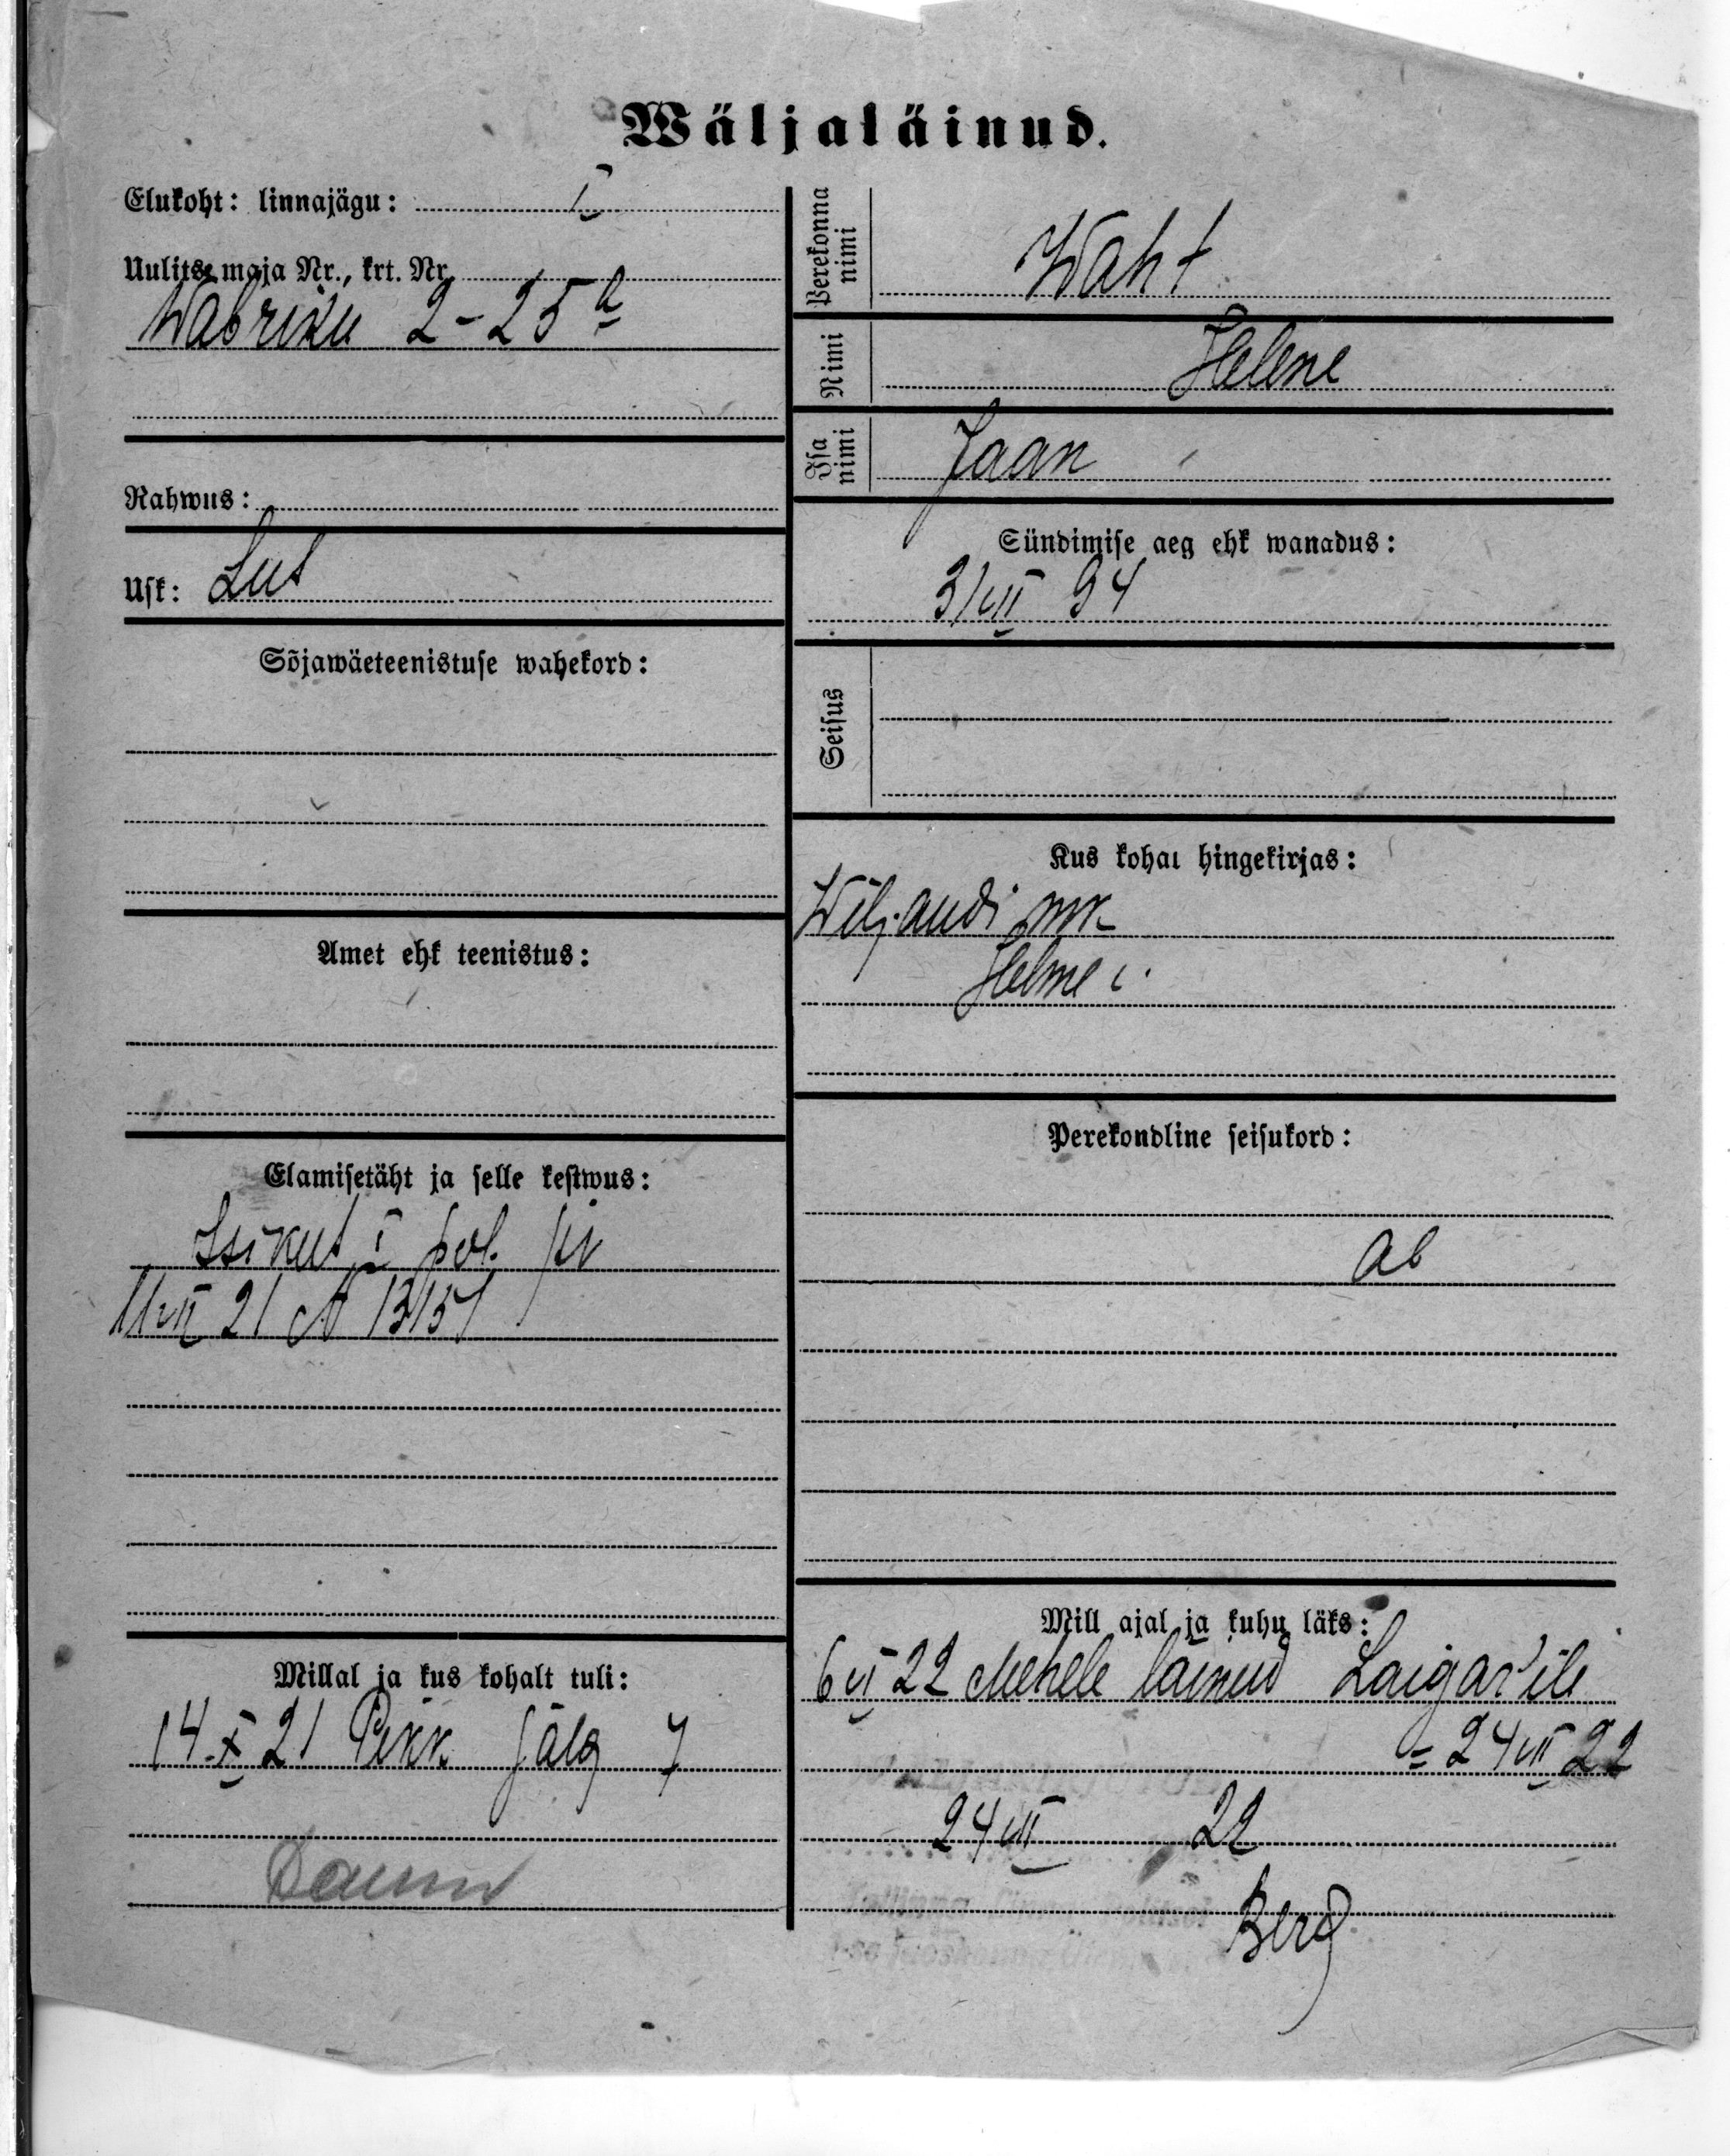 Wäljaläinud.
Elukoht: linnajägu: I
Uulits, maja Nr., krt. Nr.
Wabriku 2-25a
Rahwus:
Usk: Lut
Sõjawäeteenistuse wahekord:
Amet ehk teenistus:
Elamisetäht ja selle kestwus:
Isikut I pol. jsk
21 № 13151
Millal ja kus kohalt tuli:
14 X 21 Pikk jälg 7
Perekonna nimi Waht
Nimi Helene
Isa nimi Jaan
Sündimise aeg ehk wanadus:
31 VII 94
Seisus
Kus kohal hingekirjas:
Wiljandi mk
Helme
Perekondline seisukord:
ab
Mill ajal ja kuhu läks:
6 VI 22 Mehele läinud Laigar'ile
= 24 VII 22
24 VII 22
Berg